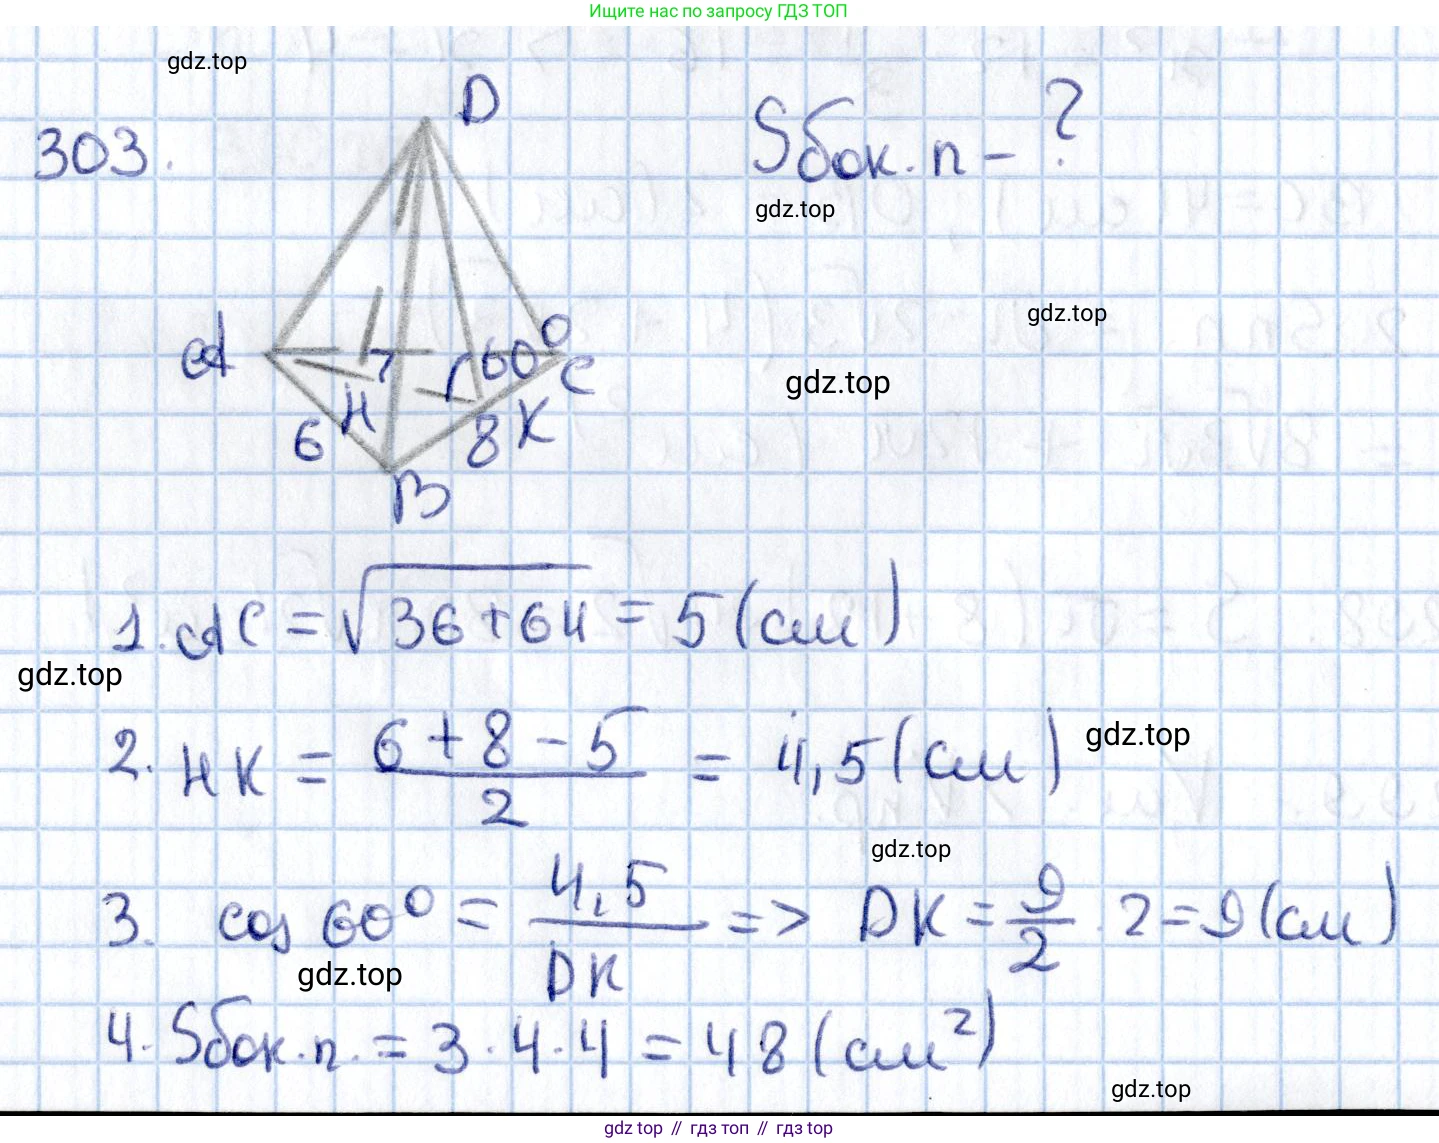 Ищите нас по запросу ГДЗ ТОП
gdz.top
303.
D
Sбок.п - ?
gdz.top
gdz.top
A
60°
C
gdz.top
H
6
8
K
B
1. AC = √36+64 = 5 (см)
gdz.top
2. HK = 6+8-5/2 = 4,5 (см)
gdz.top
gdz.top
3. cos 60° = 4,5/DK => DK = 9/2 · 2 = 9 (см)
gdz.top
4. Sбок.п. = 3·4·4 = 48 (см²)
gdz.top
gdz top // гдз топ // гдз top